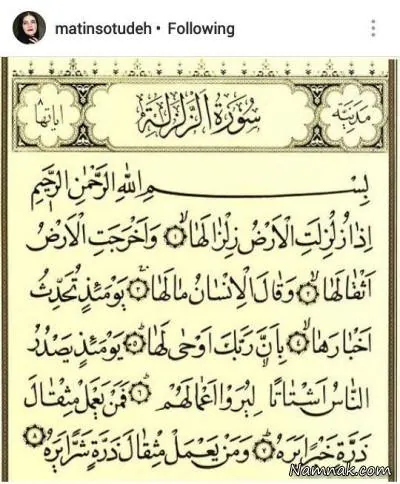 matinsotudeh • Following
مدنية سورة الزلزلة آياتها ٨
بِسْمِ اللهِ الرَّحْمٰنِ الرَّحِيمِ
اِذَا زُلْزِلَتِ الْاَرْضُ زِلْزَالَهَا ١ وَاَخْرَجَتِ الْاَرْضُ
اَثْقَالَهَا ٢ وَقَالَ الْاِنْسَانُ مَالَهَا ٣ يَوْمَئِذٍ تُحَدِّثُ
اَخْبَارَهَا ٤ بِاَنَّ رَبَّكَ اَوْحٰى لَهَا ٥ يَوْمَئِذٍ يَصْدُرُ
النَّاسُ اَشْتَاتًا لِيُرَوْا اَعْمَالَهُمْ ٦ فَمَنْ يَعْمَلْ مِثْقَالَ
ذَرَّةٍ خَيْرًا يَرَهُ ٧ وَمَنْ يَعْمَلْ مِثْقَالَ ذَرَّةٍ شَرًّا يَرَهُ ٨
Namnak.com